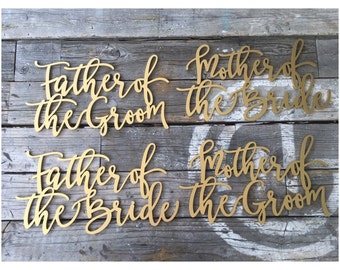 Father of
the Groom
Mother of
the Bride
Father of
the Bride
Mother of
the Groom